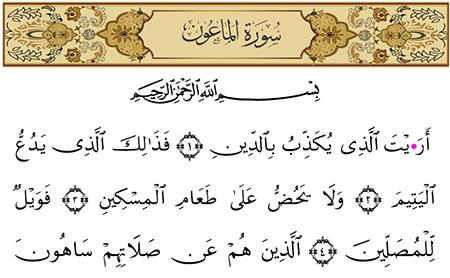 سُورَةُ الْمَاعُونِ
بِسْمِ اللَّهِ الرَّحْمَٰنِ الرَّحِيمِ
أَرَ•يْتَ اَلَّذِى يُكَذِّبُ بِالدِّينِ ﴿١﴾ فَذَٰلِكَ اَلَّذِى يَدُعُّ
اُلْيَتِيمَ ﴿٢﴾ وَلَا يَحُضُّ عَلَىٰ طَعَامِ اِلْمِسْكِينِ ﴿٣﴾ فَوَيْلٌ
لِّلْمُصَلِّينَ ﴿٤﴾ اَلَّذِينَ هُمْ عَن صَلَاتِهِمْ سَاهُونَ